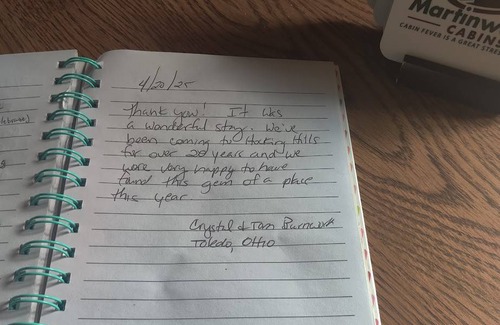 4/20/25
Thank you! It was
a wonderful stay. We've
been coming to Hocking Hills
for over 20 years and we
were very happy to have
found this gem of a place
this year
Crystal & Tom
Toledo, Ohio
CABIN
CABIN FEVER IS A GREAT